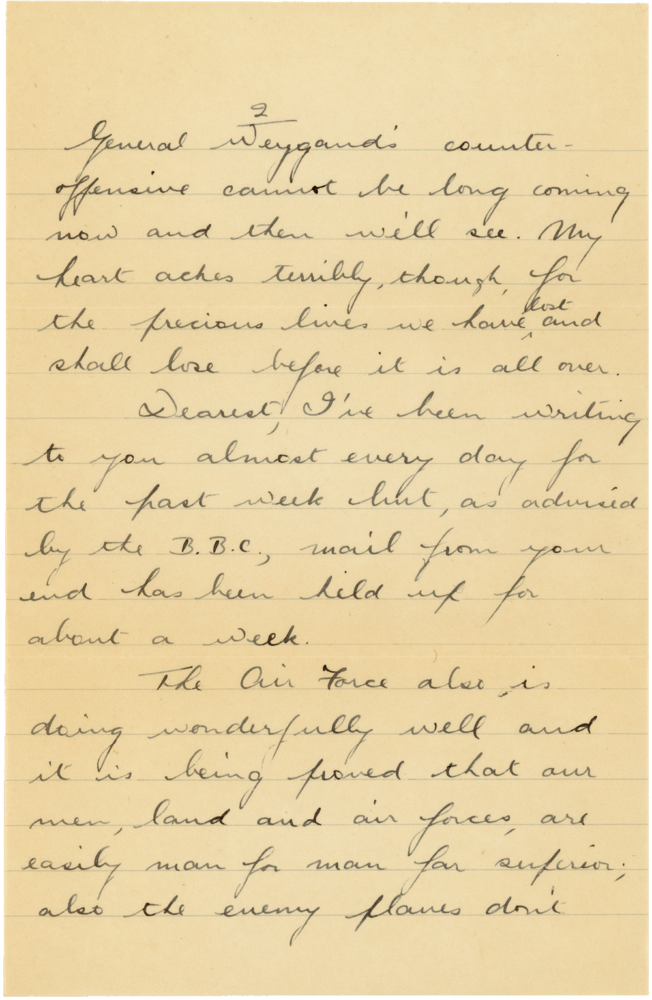 2
General Weygand's counter-
offensive cannot be long coming
now and then we'll see. My
heart aches terribly, though, for
the precious lives we have lost and
shall lose before it is all over.
Dearest, I've been writing
to you almost every day for
the past week but, as advised
by the B.B.C., mail from your
end has been held up for
about a week.
The Air Force also is
doing wonderfully well and
it is being proved that our
men, land and air forces, are
easily man for man far superior;
also the enemy planes don't